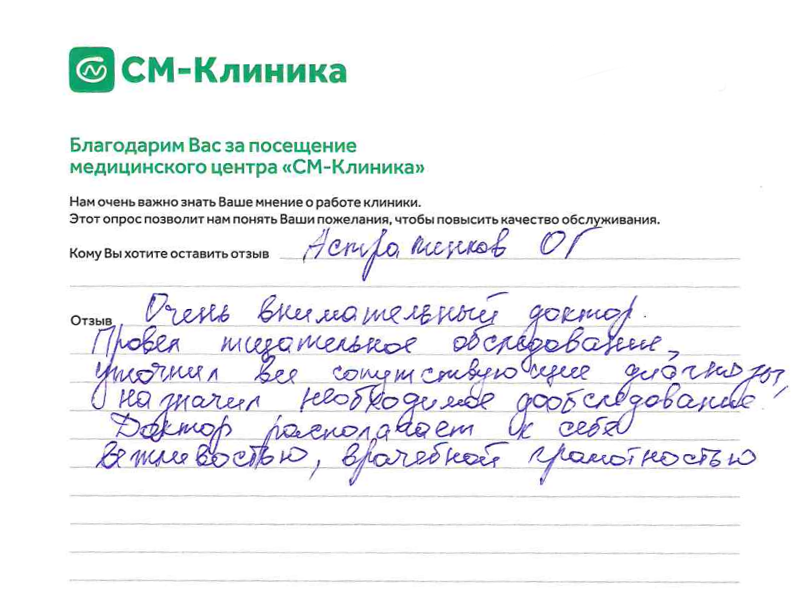 СМ-Клиника
Благодарим Вас за посещение
медицинского центра «СМ-Клиника»
Нам очень важно знать Ваше мнение о работе клиники.
Этот опрос позволит нам понять Ваши пожелания, чтобы повысить качество обслуживания.
Кому Вы хотите оставить отзыв ОГ
Отзыв Очень внимательный доктор.
Провел тщательное обследование,
уточнил все сопутствующие диагнозы,
назначил необходимое дообследование.
Доктор располагает к себе
вежливостью, врачебной грамотностью